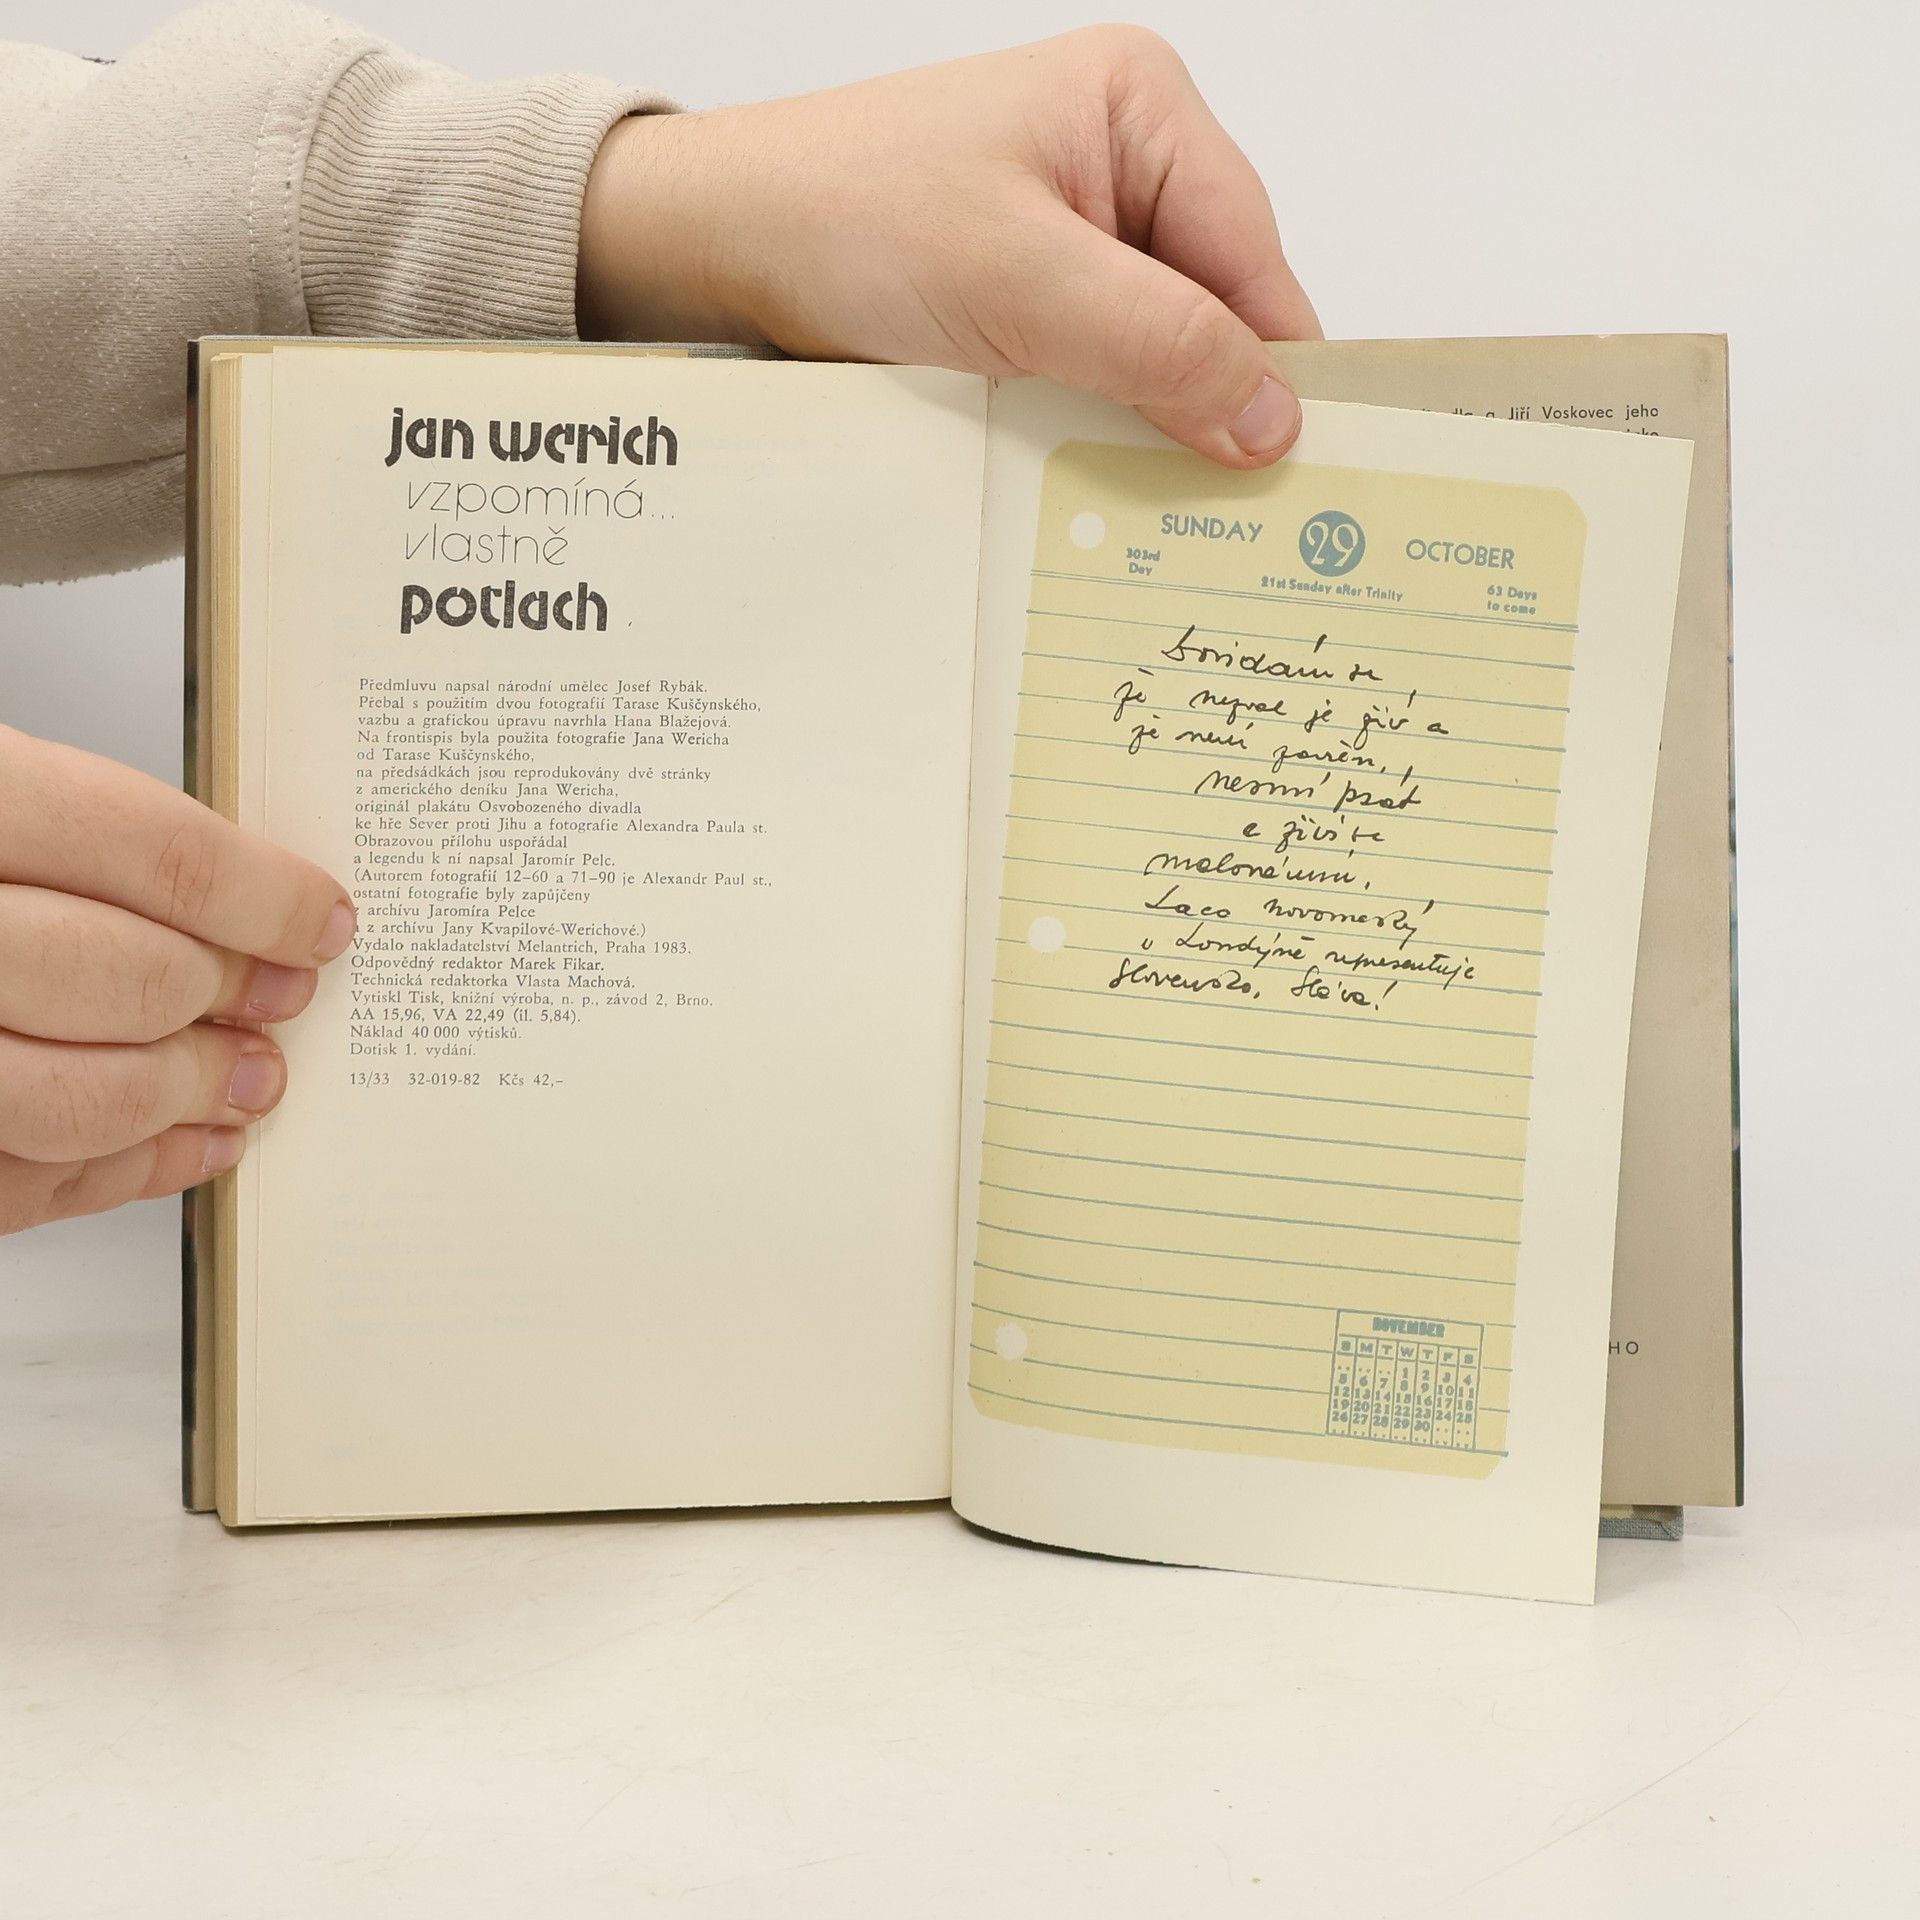 jan werich
vzpomíná...
vlastně
potlach
Předmluvu napsal národní umělec Josef Rybák.
Přebal s použitím dvou fotografií Tarase Kuščynského,
vazbu a grafickou úpravu navrhla Hana Blažejová.
Na frontispis byla použita fotografie Jana Wericha
od Tarase Kuščynského,
na předsádkách jsou reprodukovány dvě stránky
z amerického deníku Jana Wericha,
originál plakátu Osvobozeného divadla
ke hře Sever proti Jihu a fotografie Alexandra Paula st.
Obrazovou přílohu uspořádal
a legendu k ní napsal Jaromír Pelc.
(Autorem fotografií 12–60 a 71–90 je Alexandr Paul st.,
ostatní fotografie byly zapůjčeny
z archívu Jaromíra Pelce
z archívu Jany Kvapilové-Werichové.)
Vydalo nakladatelství Melantrich, Praha 1983.
Odpovědný redaktor Marek Fikar.
Technická redaktorka Vlasta Machová.
Vytiskl Tisk, knižní výroba, n. p., závod 2, Brno.
AA 15,96, VA 22,49 (il. 5,84).
Náklad 40 000 výtisků.
Dotisk 1. vydání.
13/33 32-019-82 Kčs 42,–
a Jiří Voskovec jeho
SUNDAY 29 OCTOBER
303rd Day
21st Sunday after Trinity
63 Days to come
Dovídám se,
že nezval je živ a
že není zavřen,
nesmí psát
a živí se
malováním,
Laco Novomeský
v Londýně representuje
Slovensko, Sláva!
NOVEMBER
S M T W T F S
.. .. .. 1 2 3 4
5 6 7 8 9 10 11
12 13 14 15 16 17 18
19 20 21 22 23 24 25
26 27 28 29 30 .. ..
HO